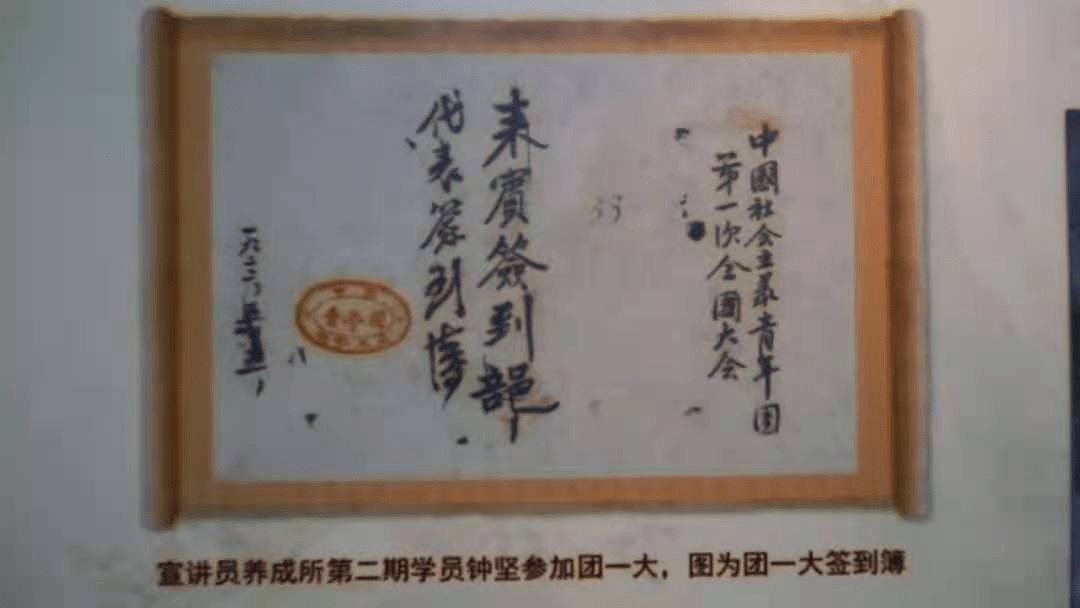 中國社会主义青年團
第一次全國大会
33
来賓簽到部
代表簽到簿
青年團
宣讲员养成所第二期学员钟坚参加团一大，图为团一大签到簿